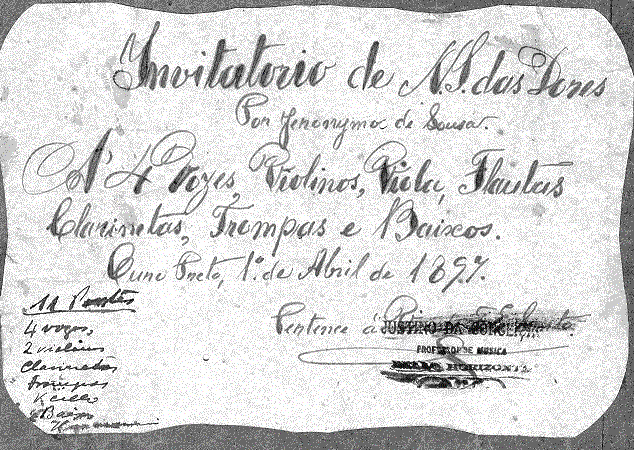 Invitatorio de N. S. das Dores
Por Jeronymo de Sousa.
A 4 Vozes, Violinos, Viola, Flautas
Clarinetas, Trompas e Baixos.
Ouro Preto, 1º. de Abril de 1897.
11 Partes
4 vozes,
2 violinos
Clarinetas
Trompas
Baixo
Pertence á
JUSTINO DA CONCEIÇÃO
PROFESSOR DE MUSICA
HORIZONTE